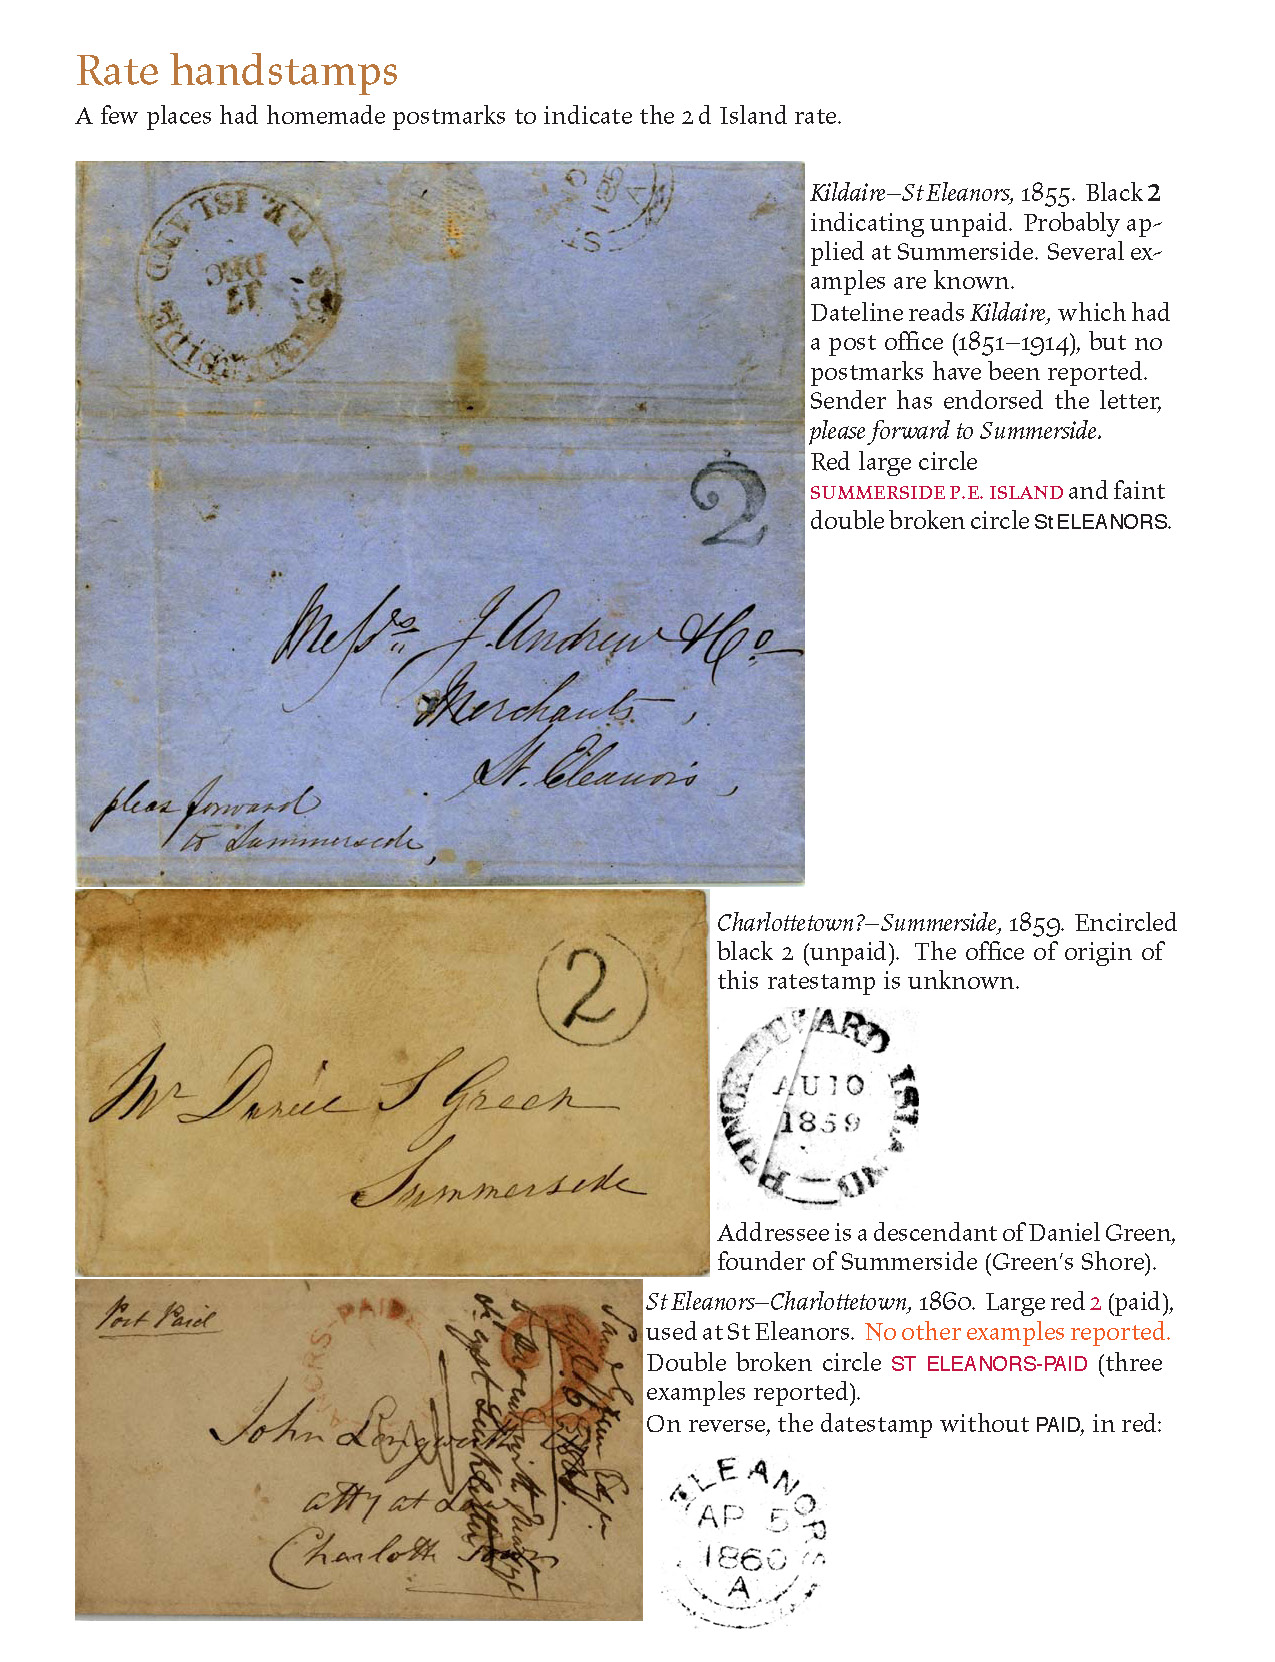 Rate handstamps
A few places had homemade postmarks to indicate the 2d Island rate.
P.E. ISLAND
SUMMERSIDE
DEC
17
185
A
St
2
Messrs J. Andrew & Co
Merchants,
St. Eleanors,
pleas forward
to Summerside,
Kildaire–St Eleanors, 1855. Black 2
indicating unpaid. Probably ap-
plied at Summerside. Several ex-
amples are known.
Dateline reads Kildaire, which had
a post office (1851–1914), but no
postmarks have been reported.
Sender has endorsed the letter,
please forward to Summerside.
Red large circle
SUMMERSIDE P.E. ISLAND and faint
double broken circle St ELEANORS.
2
Mr Daniel S Green
Summerside
Charlottetown?–Summerside, 1859. Encircled
black 2 (unpaid). The office of origin of
this ratestamp is unknown.
PRINCE EDWARD ISLAND
AU 10
1859
Addressee is a descendant of Daniel Green,
founder of Summerside (Green's Shore).
Post Paid
NORS PAID
John Longworth
atty at Law
Charlotte Town
St Eleanors–Charlottetown, 1860. Large red 2 (paid),
used at St Eleanors. No other examples reported.
Double broken circle ST ELEANORS-PAID (three
examples reported).
On reverse, the datestamp without PAID, in red:
ELEANORS
AP 5
1860
A